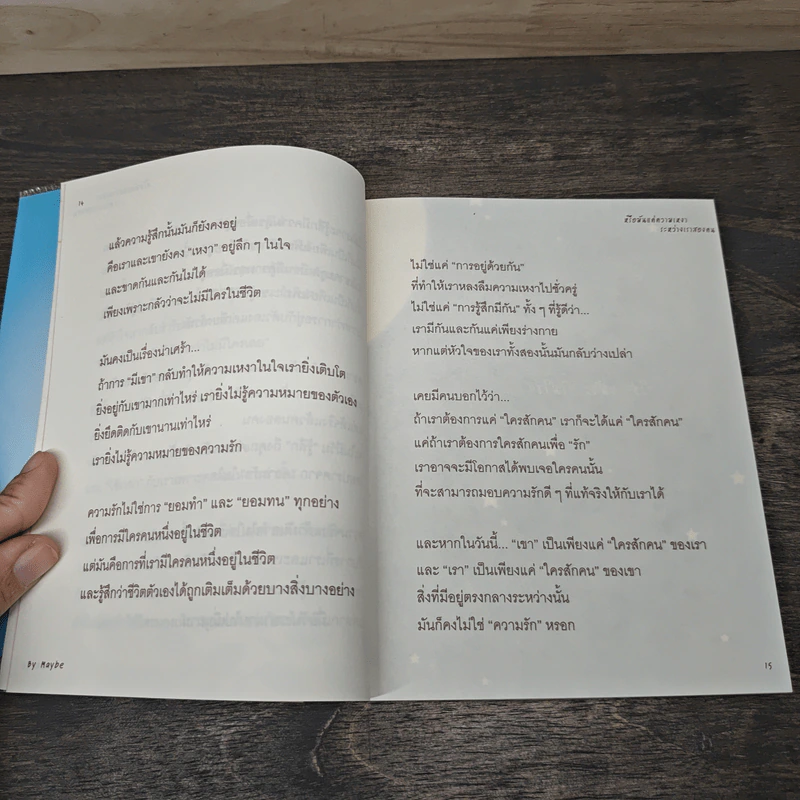 14
แล้วความรู้สึกนั้นมันก็ยังคงอยู่
คือเราและเขายังคง “เหงา” อยู่ลึก ๆ ในใจ
และขาดกันและกันไม่ได้
เพียงเพราะกลัวว่าจะไม่มีใครในชีวิต
มันคงเป็นเรื่องน่าเศร้า...
ถ้าการ “มีเขา” กลับทำให้ความเหงาในใจเรายิ่งเติบโต
ยิ่งอยู่กับเขามากเท่าไหร่ เรายิ่งไม่รู้ความหมายของตัวเอง
ยิ่งยึดติดกับเขานานเท่าไหร่
เรายิ่งไม่รู้ความหมายของความรัก
ความรักไม่ใช่การ “ยอมทำ” และ “ยอมทน” ทุกอย่าง
เพื่อการมีใครคนหนึ่งอยู่ในชีวิต
แต่มันคือการที่เรามีใครคนหนึ่งอยู่ในชีวิต
และรู้สึกว่าชีวิตตัวเองได้ถูกเติมเต็มด้วยบางสิ่งบางอย่าง
By Maybe
หรือมันแค่ความเหงา
ระหว่างเราสองคน
ไม่ใช่แค่ “การอยู่ด้วยกัน”
ที่ทำให้เราหลงลืมความเหงาไปชั่วครู่
ไม่ใช่แค่ “การรู้สึกมีกัน” ทั้ง ๆ ที่รู้ดีว่า...
เรามีกันและกันแค่เพียงร่างกาย
หากแต่หัวใจของเราทั้งสองนั้นมันกลับว่างเปล่า
เคยมีคนบอกไว้ว่า...
ถ้าเราต้องการแค่ “ใครสักคน” เราก็จะได้แค่ “ใครสักคน”
แค่ถ้าเราต้องการใครสักคนเพื่อ “รัก”
เราอาจจะมีโอกาสได้พบเจอใครคนนั้น
ที่จะสามารถมอบความรักดี ๆ ที่แท้จริงให้กับเราได้
และหากในวันนี้... “เขา” เป็นเพียงแค่ “ใครสักคน” ของเรา
และ “เรา” เป็นเพียงแค่ “ใครสักคน” ของเขา
สิ่งที่มีอยู่ตรงกลางระหว่างนั้น
มันก็คงไม่ใช่ “ความรัก” หรอก
15